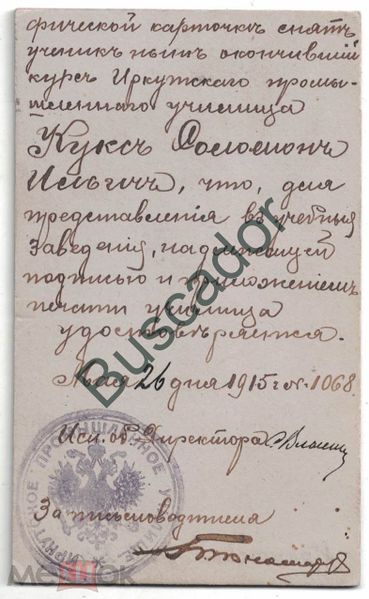 фической карточкѣ снятъ
ученикъ нынѣ окончившій
курсъ Иркутскаго промы-
шленнаго училища
Куксъ Соломонъ
Ильичъ, что, для
представленія въ учебныя
заведенія, надлежащей
подписью и приложеніемъ
печати училища
удостовѣряется.
Мая 26 дня 1915 г. № 1068.
Исп. об. Директора
За письмоводителя
ИРКУТСКОЕ ПРОМЫШЛЕННОЕ УЧИЛИЩЕ
Buscador